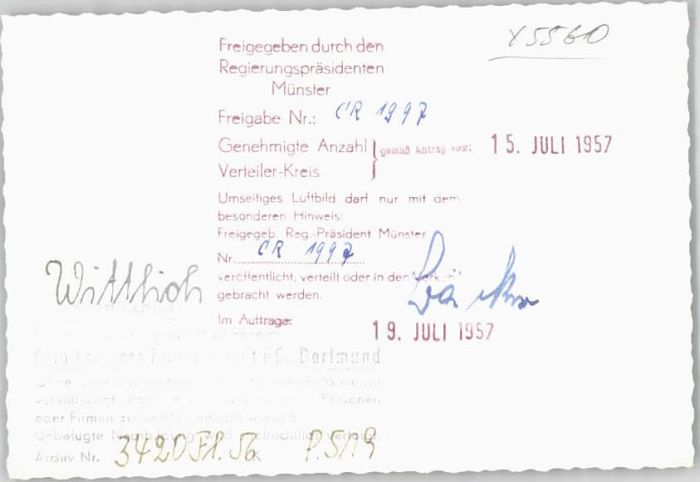 x5560
Freigegeben durch den
Regierungspräsidenten
Münster
Freigabe Nr.: CR 1997
Genehmigte Anzahl gemäß Antrag vom: 15. JULI 1957
Verteiler-Kreis
Umseitiges Luftbild darf nur mit dem
besonderen Hinweis:
Freigegeb. Reg.-Präsident Münster
Nr. CR 1997
veröffentlicht, verteilt oder in den Verkehr
gebracht werden.
Wittlich
Im Auftrage:
19. JULI 1957
Dortmund
oder Firmen
Unbefugte
Archiv Nr. 3420 Fl. 56 P. 5119